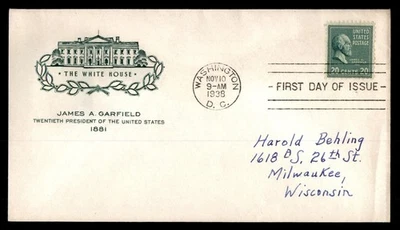 · THE WHITE HOUSE ·
JAMES A. GARFIELD
TWENTIETH PRESIDENT OF THE UNITED STATES
1881
WASHINGTON
NOV 10
9-AM
1938
D. C.
FIRST DAY OF ISSUE
UNITED
STATES
POSTAGE
20 CENTS 20
Harold Behling
1618 B S. 26th St.
Milwaukee,
Wisconsin